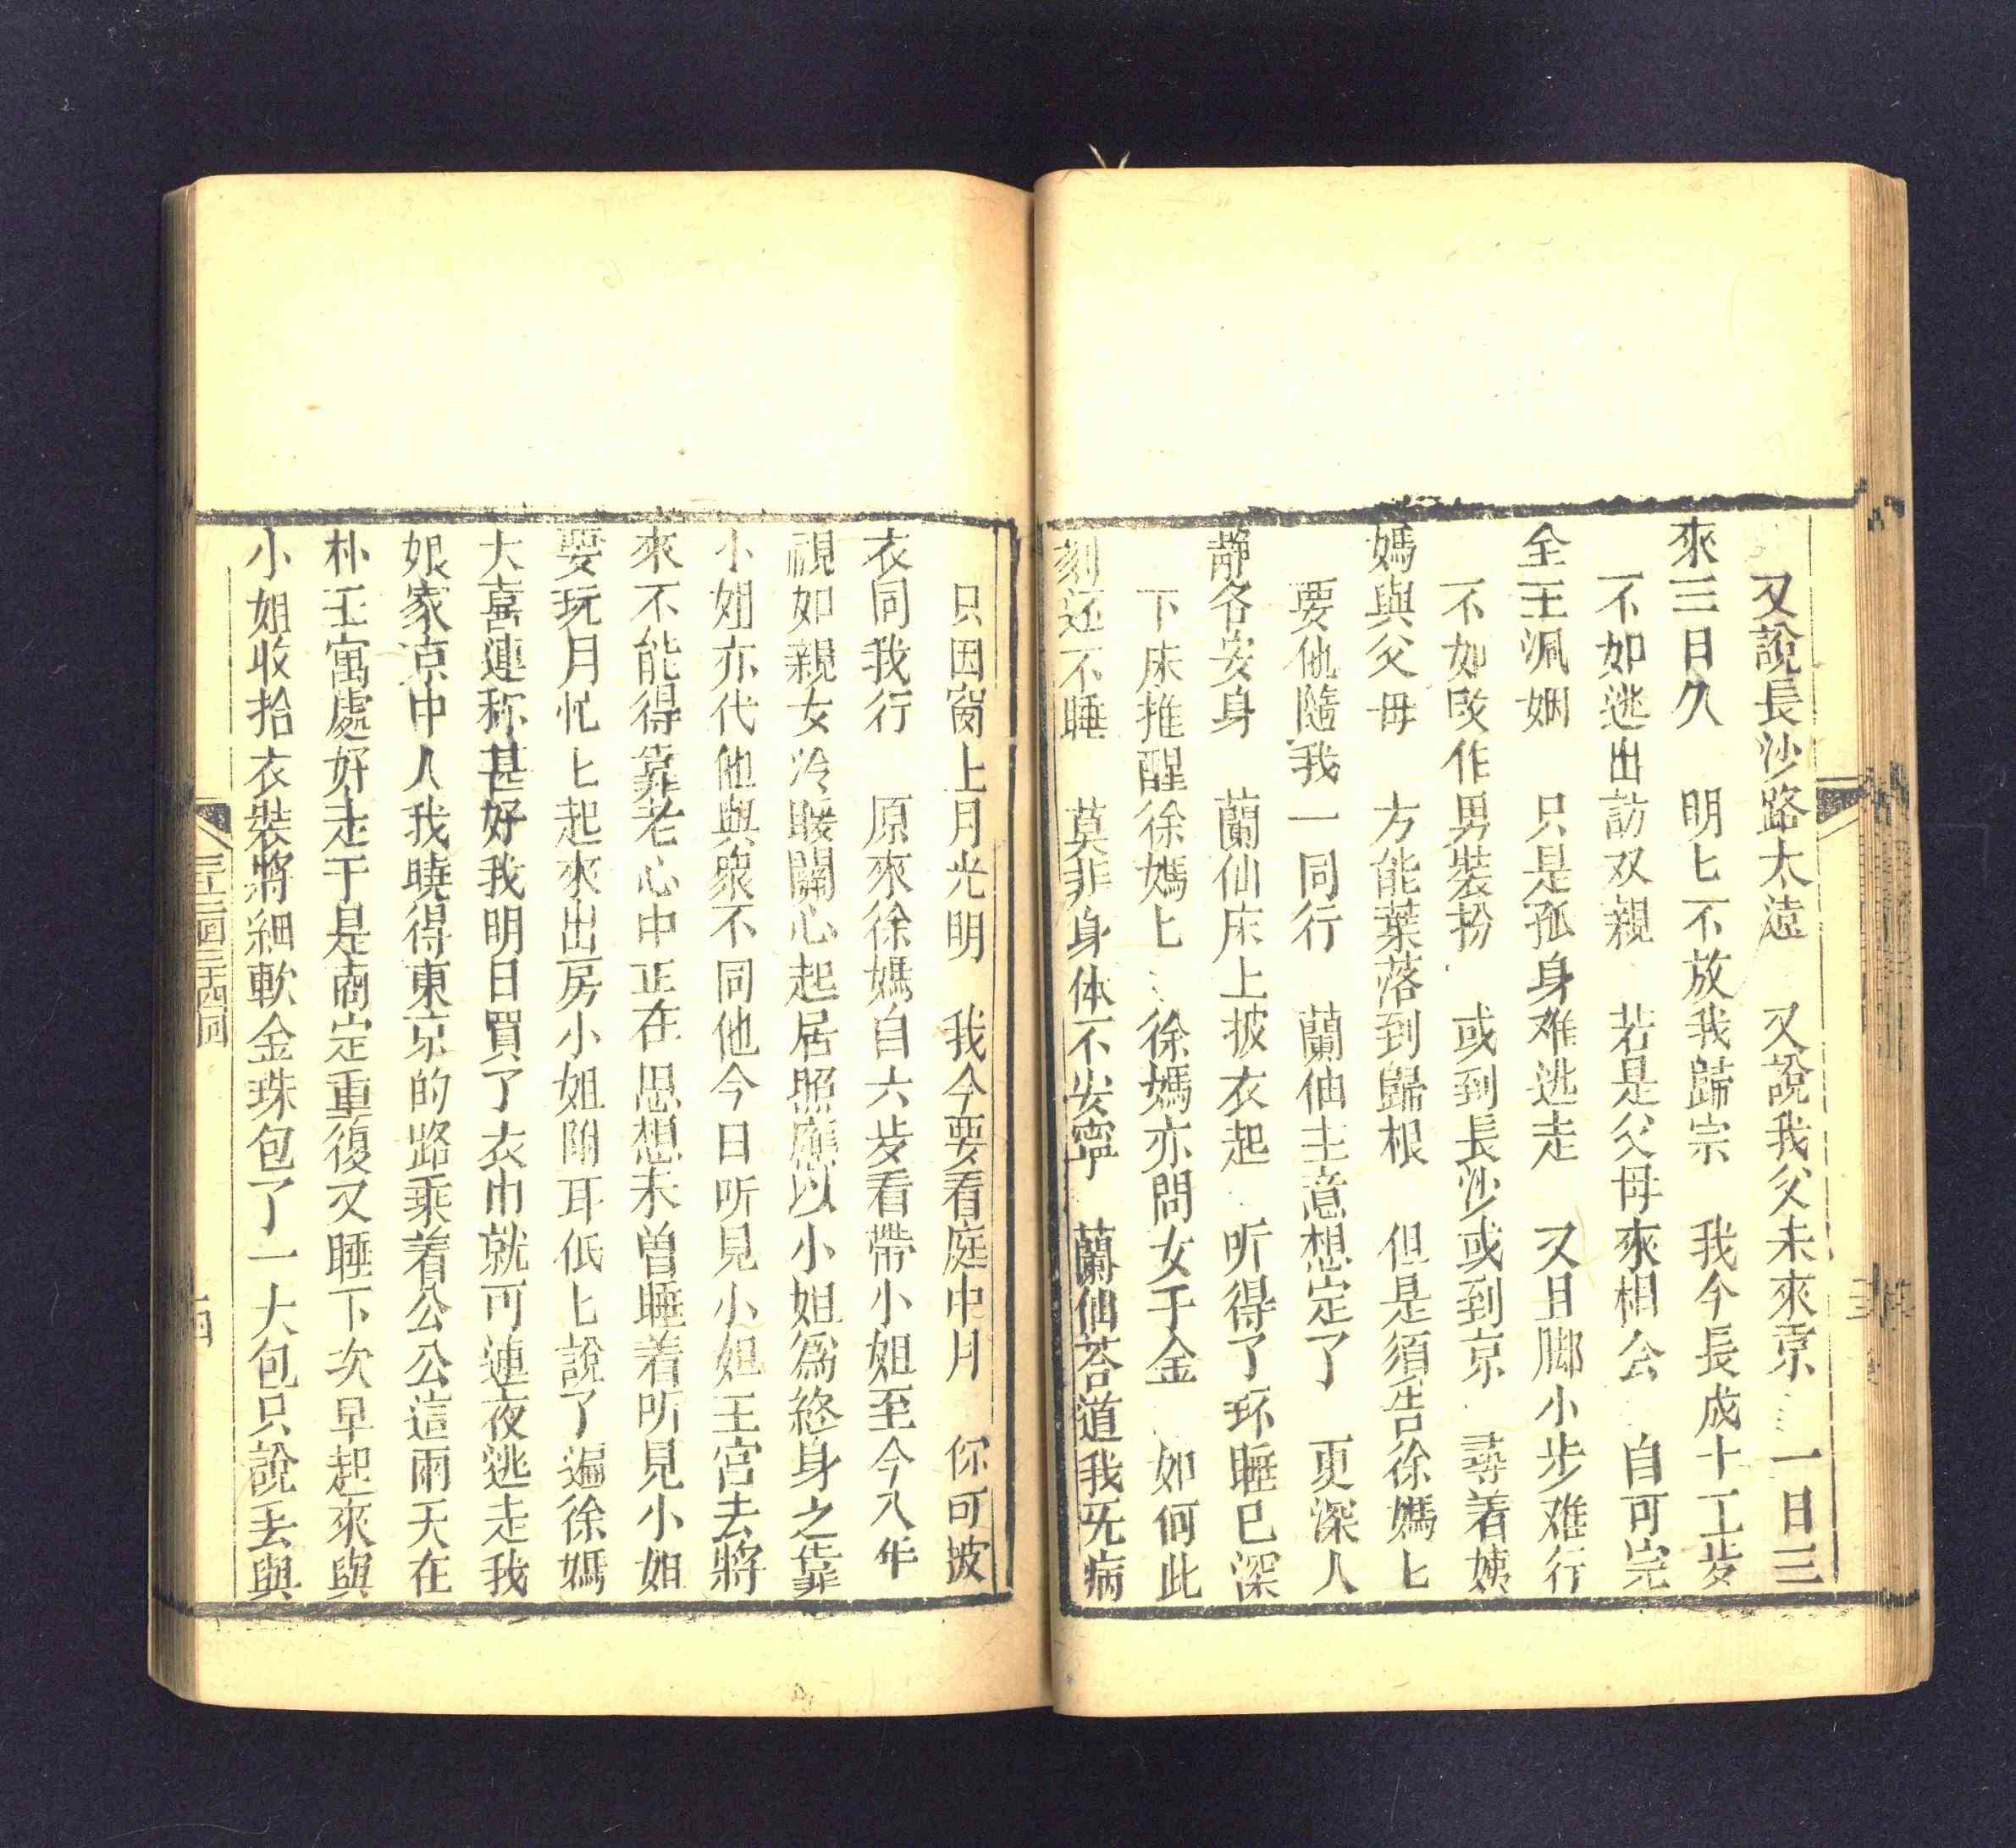 又說長沙路太遠　又說我父未來京　一日三
來三日久　明匕不放我歸宗　我今長成十二岁
不如逃出訪双親　若是父母來相会　自可完
全王洞姻　只是孤身难逃走　又且脚小步难行
不如改作男裝扮　或到長沙或到京　尋着姨
媽與父母　方能葉落到歸根　但是須告徐媽匕
要他隨我一同行　蘭仙主意想定了　更深人
靜各安身　蘭仙床上披衣起　听得了环睡已深
下床推醒徐媽匕　徐媽亦問女千金　如何此
刻还不睡　莫非身体不安寧　蘭仙荅道我旡病
只因窗上月光明　我今要看庭中月　你可披
衣同我行　原來徐媽自六岁看帶小姐至今八年
視如親女冷暖關心起居照應以小姐為終身之靠
小姐亦代他與衆不同他今日听見小姐王宮去將
來不能得靠老心中正在思想未曾睡着听見小姐
要玩月忙匕起來出房小姐附耳低匕說了遍徐媽
大喜連称甚好我明日買了衣巾就可連夜逃走我
娘家京中人我曉得東京的路乘着公公這兩天在
朴王寓處好走于是商定重復又睡下次早起來與
小姐收拾衣裝將細軟金珠包了一大包只說丢與